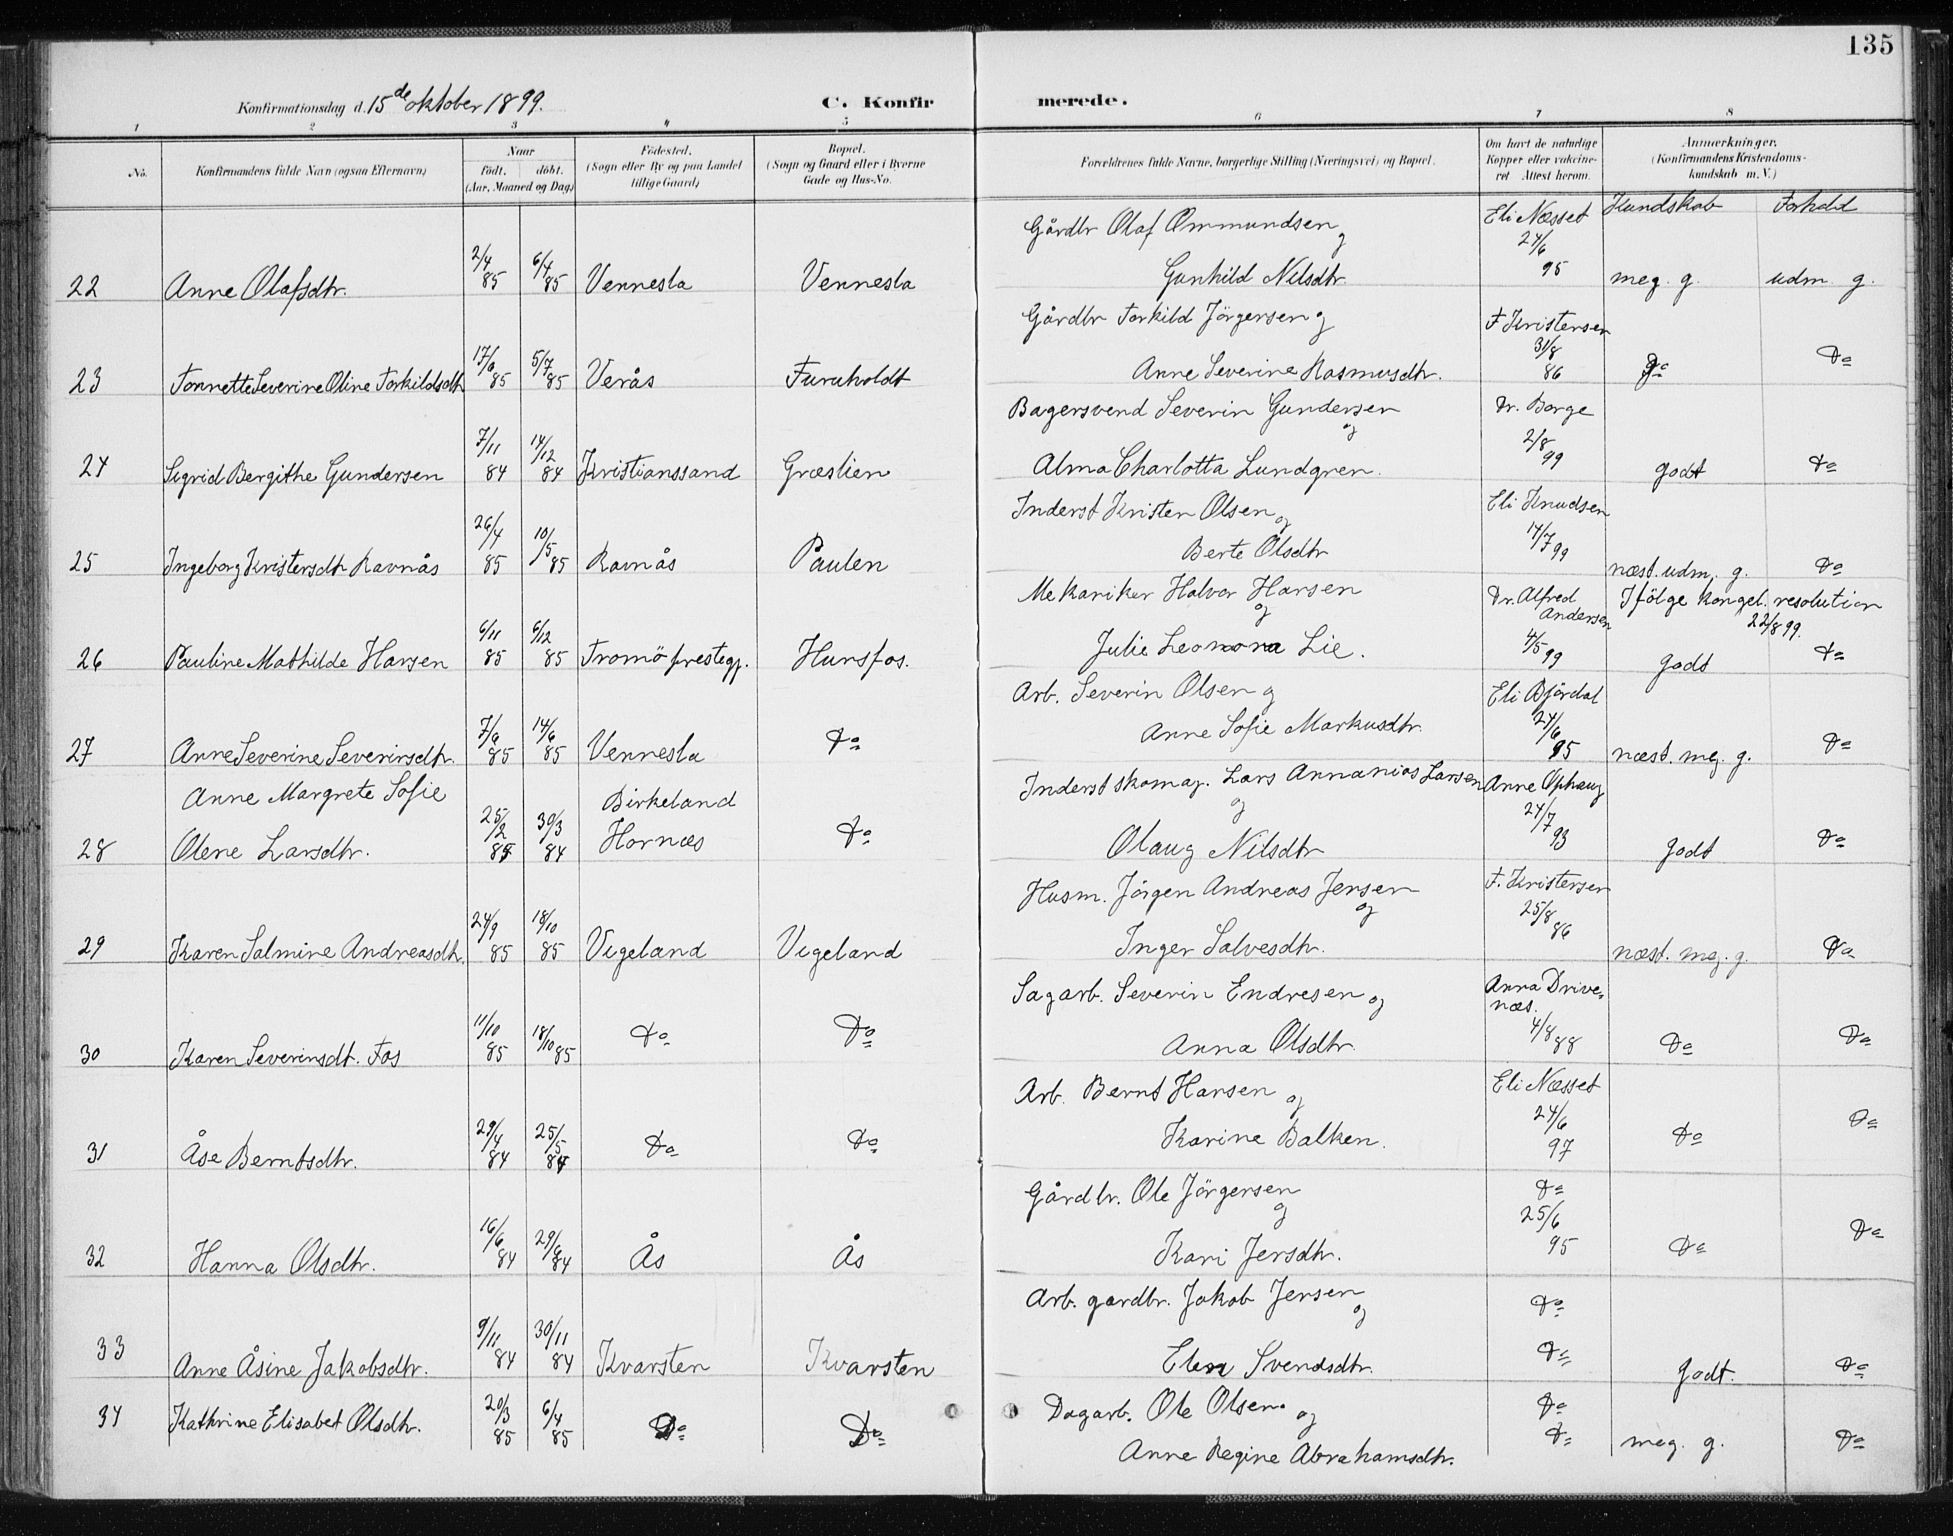 135
Konfirmationsdag d. 15de oktober 1899. C. Konfirmerede.
1 2 3 4 5 6 7 8
No. Konfirmandens fulde Navn (ogsaa Efternavn) Naar födt. döbt. (Aar, Maaned og Dag) Födested. (Sogn eller By og paa Landet tillige Gaard) Bopæl. (Sogn og Gaard eller i Byerne Gade og Hus-No. Forældrenes fulde Navne, borgerlige Stilling (Næringsvei) og Bopæl. Om havt de naturlige Kopper eller vakcineret Attest herom. Anmærkninger. (Konfirmandens Kristendomskundskab m. V.)
Kundskab Forhold
Gårdbr Olaf Ommundsen og Eli Næsset
22 Anne Olafsdtr. 2/4 85 6/4 85 Vennesla Vennesla Gunhild Nilsdtr. 24/6 95 meg. g. udm. g.
Gårdbr Torkild Jörgensen og F Kristensen
23 Tonnette Severine Oline Torkildsdtr 17/6 85 5/7 85 Verås Furuholdt Anne Severine Rasmusdtr. 31/8 86 Do Do
Bagersvend Severin Gundersen og Dr. Borge
24 Sigrid Bergithe Gundersen 7/11 84 14/12 84 Kristianssand Græslien Alma Charlotta Lundgren. 2/8 99 godt Do
Inderst Kristen Olsen og Eli Knudsen
25 Ingeborg Kristensdtr Ravnås 26/4 85 10/5 85 Ravnås Paulen Berte Olsdtr 14/7 99 næst. udm. g. Do
Mekaniker Halvor Hansen og Dr. Alfred Andersen Ifölge kongel. resolution 22/8 99.
26 Pauline Mathilde Hansen 6/11 85 6/12 85 Tromö prestegj. Hunsfos. Julie Leonora Lie. 4/5 99 godt Do
Arb. Severin Olsen og Eli Björdal
27 Anne Severine Severinsdtr. 7/6 85 14/6 85 Vennesla Do Anne Sofie Markusdtr. 24/6 95 næst. meg. g. Do
Anne Margrete Sofie Birkeland Inderst skomag. Lars Annanias Larsen og Anne Ophaug
28 Olene Larsdtr. 25/2 85 30/3 84 Hornæs Do Olaug Nilsdtr 24/7 93 godt Do
Husm. Jörgen Andreas Jensen og F. Kristensen
29 Karen Salmine Andreasdtr. 24/9 85 18/10 85 Vigeland Vigeland Inger Salvesdtr. 25/8 86 næst. meg. g. Do
Sagarb. Severin Endresen og Anna Drivenæs.
30 Karen Severinsdt. Fos 11/10 85 18/10 85 Do Do Anna Olsdtr. 4/8 88 Do Do
Arb. Bernt Hansen og Eli Næsset
31 Åse Berntsdtr. 29/4 84 25/5 84 Do Do Karine Balken. 24/6 97 Do Do
Gårdbr. Ole Jörgensen og Do
32 Hanna Olsdtr. 16/6 84 29/6 84 Ås Ås Kari Jensdtr. 25/6 95 Do Do
Arb. gardbr. Jakob Jensen og Do
33 Anne Åsine Jakobsdtr. 9/11 84 30/11 84 Kvarsten Kvarsten Elen Svendsdtr. Do godt. Do
Dagarb. Ole Olsen og Do
34 Kathrine Elisabet Olsdtr. 20/3 85 6/4 85 Do Do Anne Regine Abrahamsdtr. Do meg. g. Do